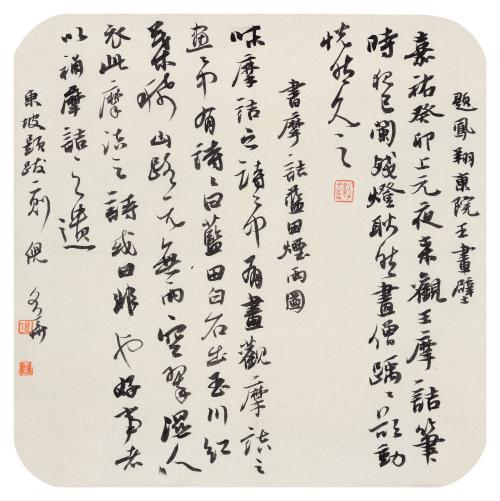 題鳳翔東院王畫壁
嘉祐癸卯上元夜來觀王摩詰筆
時夜已闌殘燈耿然畫僧踽〻欲動
恍然久之
書摩詰藍田煙雨圖
味摩詰之詩〻中有畫觀摩詰之
畫〻中有詩〻曰藍田白石出玉川紅
葉稀山路元無雨空翠濕人
衣此摩詰之詩或曰非也好事者
以補摩詰之遺
東坡題跋二則 倪